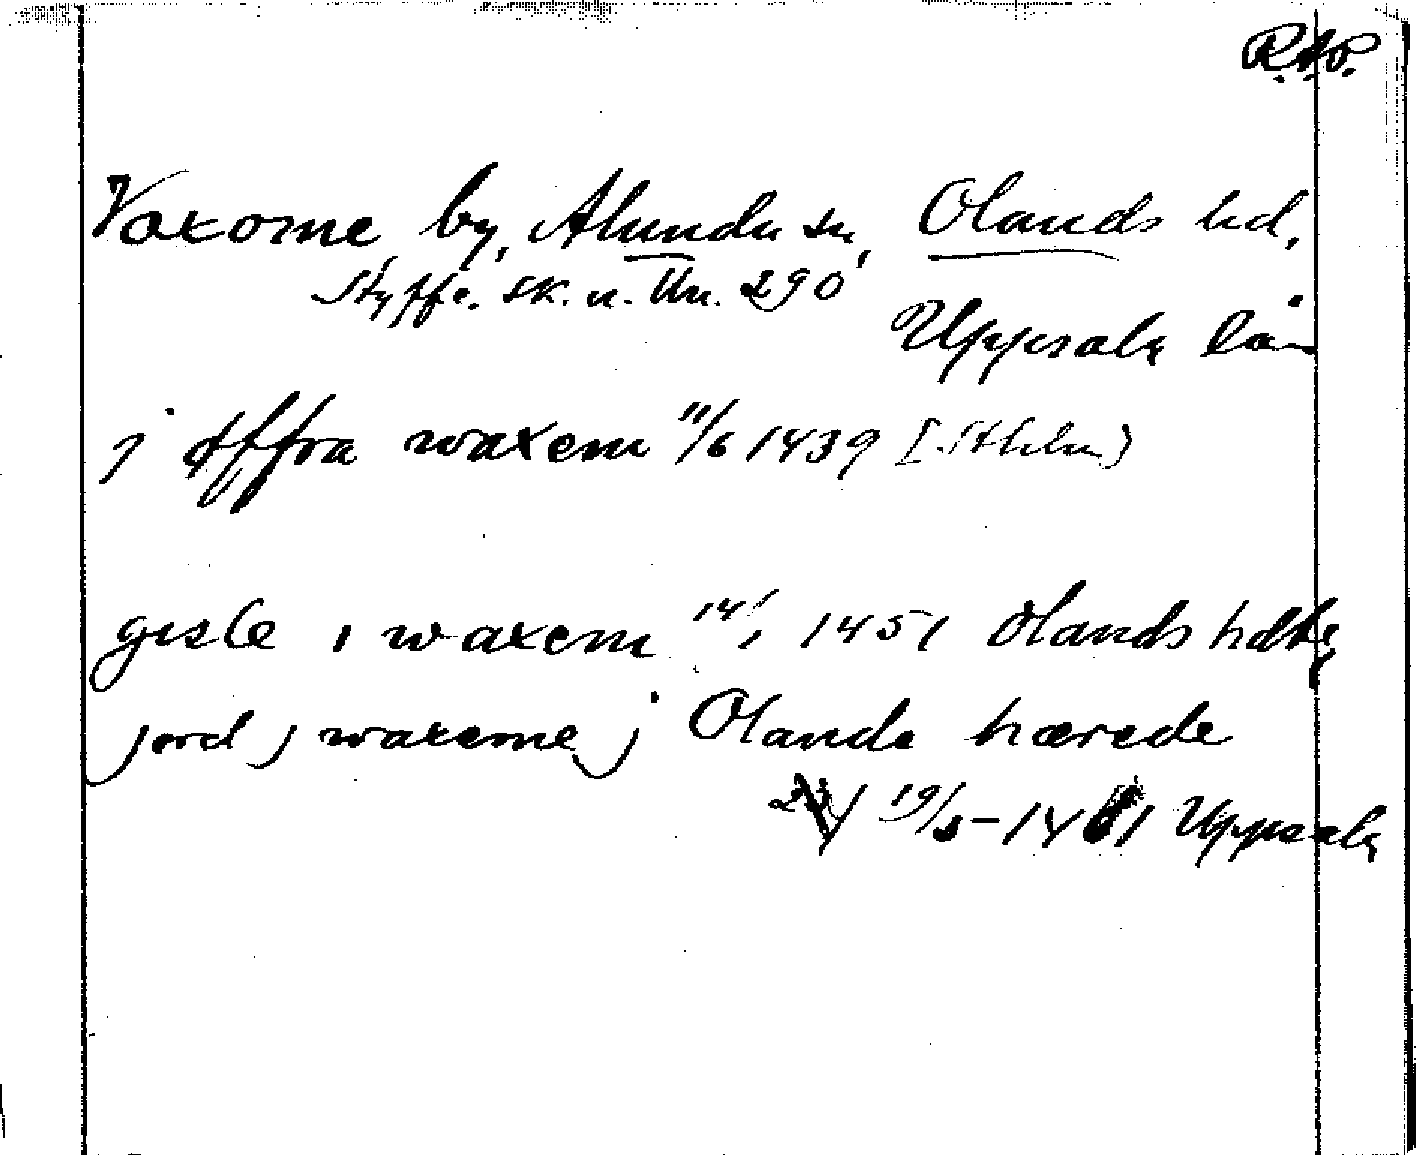 R.A.P.
Vaxome by, Alunda sn, Olands hd,
Styffe. sk. u. Un. 290
Uppsala län
j offra waxem 11/6 1439 [Sthlm]
gisle i waxem 14/1 1451 Olands hdtg
jord j waxeme j Olanda hærede
19/5 - 1461 Uppsala